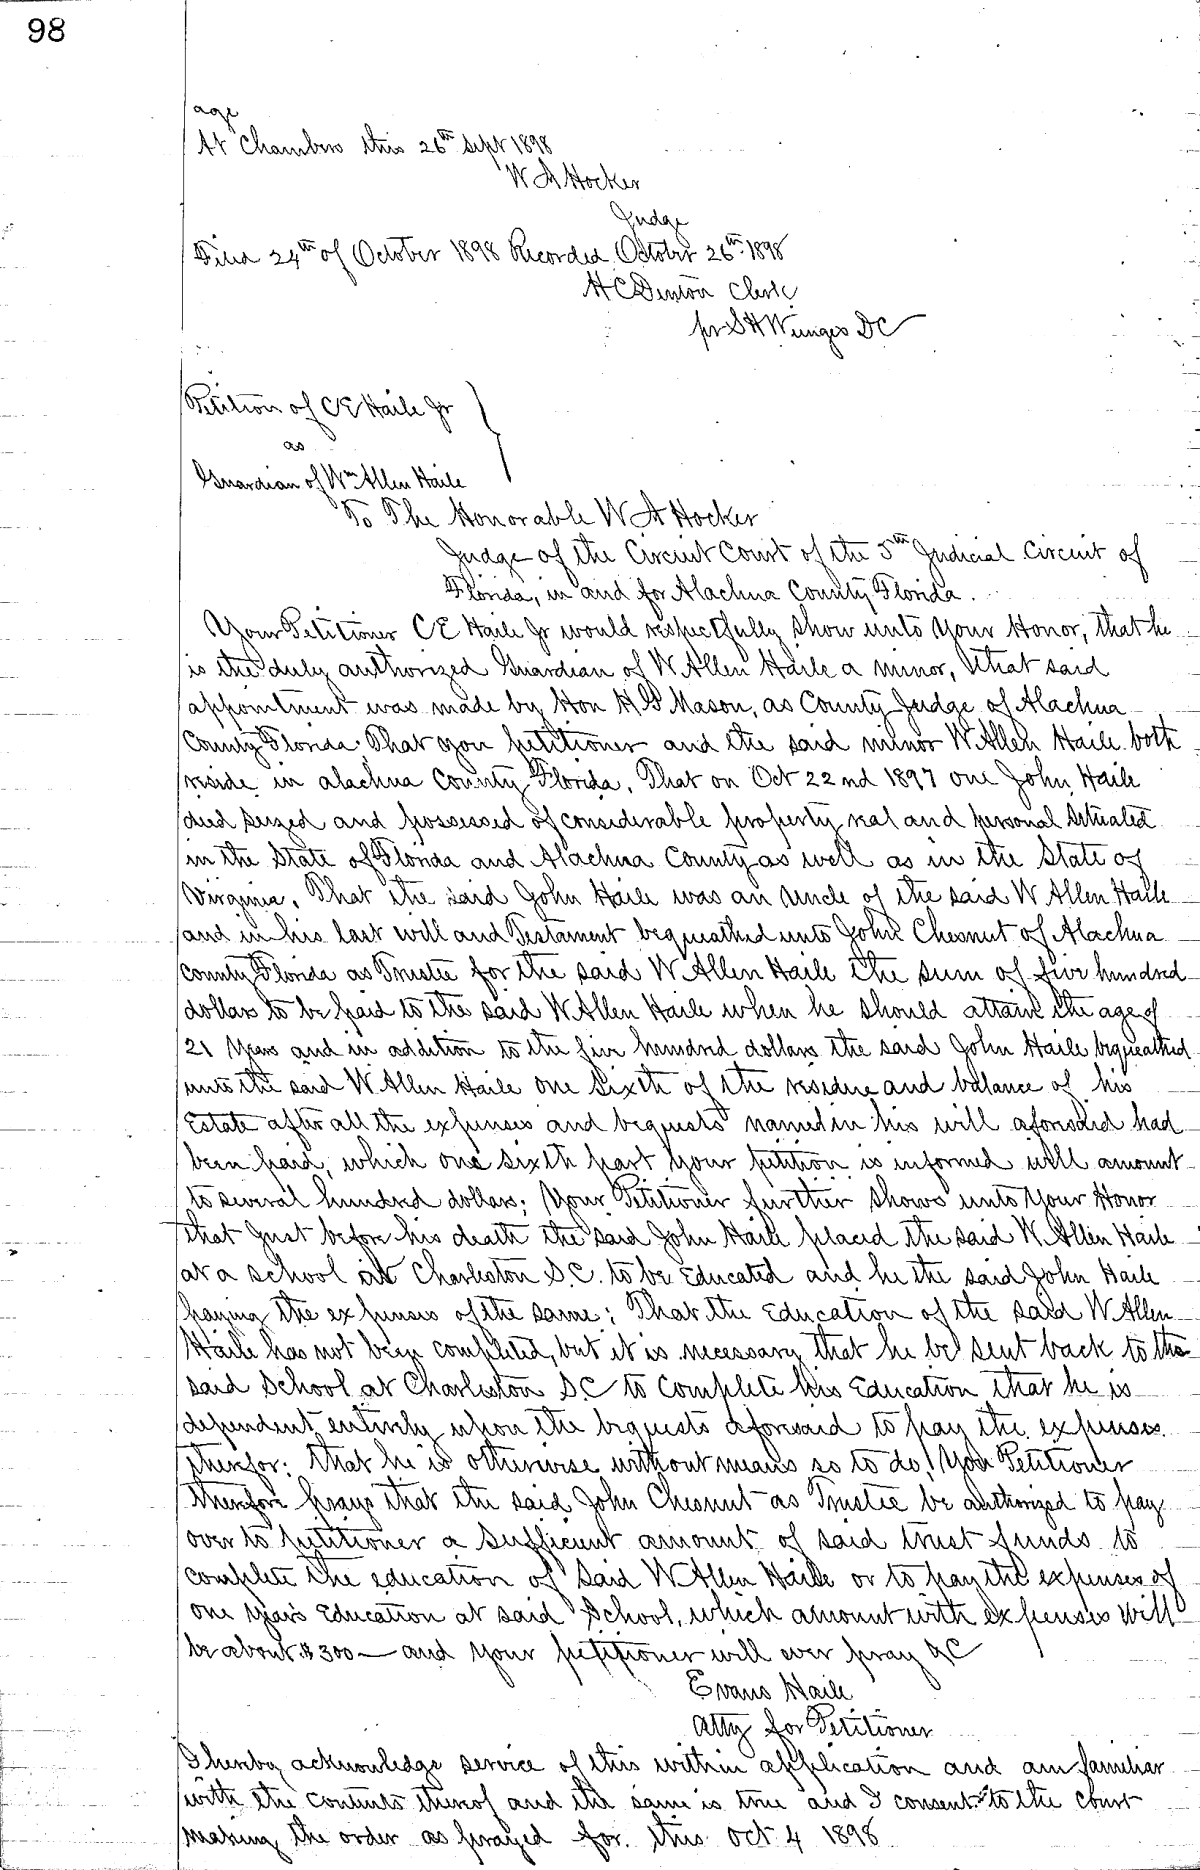 98
age
At Chambers this 26th Sept 1898
W A Hocker
Judge
Filed 24th of October 1898 Recorded October 26th 1898
H C Denton Clerk
pr S H Wienges DC
Petition of C E Haile Jr
as
Guardian of Wm Allen Haile
To The Honorable W A Hocker
Judge of the Circuit Court of the 5th Judicial Circuit of
Florida, in and for Alachua County Florida.
Your Petitioner C E Haile Jr would respectfully show unto Your Honor, that he
is the duly authorized Guardian of W Allen Haile a minor, that said
appointment was made by Hon H G Mason, as County Judge of Alachua
County Florida. That you petitioner and the said minor W Allen Haile both
reside in alachua County Florida. That on Oct 22nd 1897 one John Haile
died seized and possessed of considerable property real and personal situated
in the State of Florida and Alachua County as well as in the State of
Virginia. That the said John Haile was an uncle of the said W Allen Haile
and in his last will and Testament bequeathed unto John Chesnut of Alachua
County Florida as Trustee for the said W Allen Haile the sum of five hundred
dollars to be paid to the said W Allen Haile when he should attain the age of
21 Years and in addition to the five hundred dollars the said John Haile bequeathed
unto the said W Allen Haile one sixth of the residue and balance of his
Estate after all the expenses and bequests named in his will aforesaid had
been paid, which one sixth part your petition is informed will amount
to several hundred dollars; Your Petitioner further shows unto Your Honor
that just before his death the said John Haile placed the said W Allen Haile
at a school at Charleston S.C. to be Educated and he the said John Haile
paying the expenses of the same; That the Education of the said W Allen
Haile has not been completed, but it is necessary that he be sent back to the
said School at Charleston S.C to complete his Education that he is
dependent entirely upon the bequests aforesaid to pay the expenses
therefor; that he is otherwise without means so to do! Your Petitioner
therefore prays that the said John Chesnut as Trustee be authorized to pay
over to petitioner a sufficient amount of said trust funds to
complete the education of said W Allen Haile or to pay the expenses of
one years Education at said School, which amount with expenses will
be about $300— and your petitioner will ever pray &C
Evans Haile
Atty for Petitioner
I hereby acknowledge service of this within application and am familiar
with the contents thereof and the same is true and I consent to the court
making the order as prayed for. this Oct 4 1898